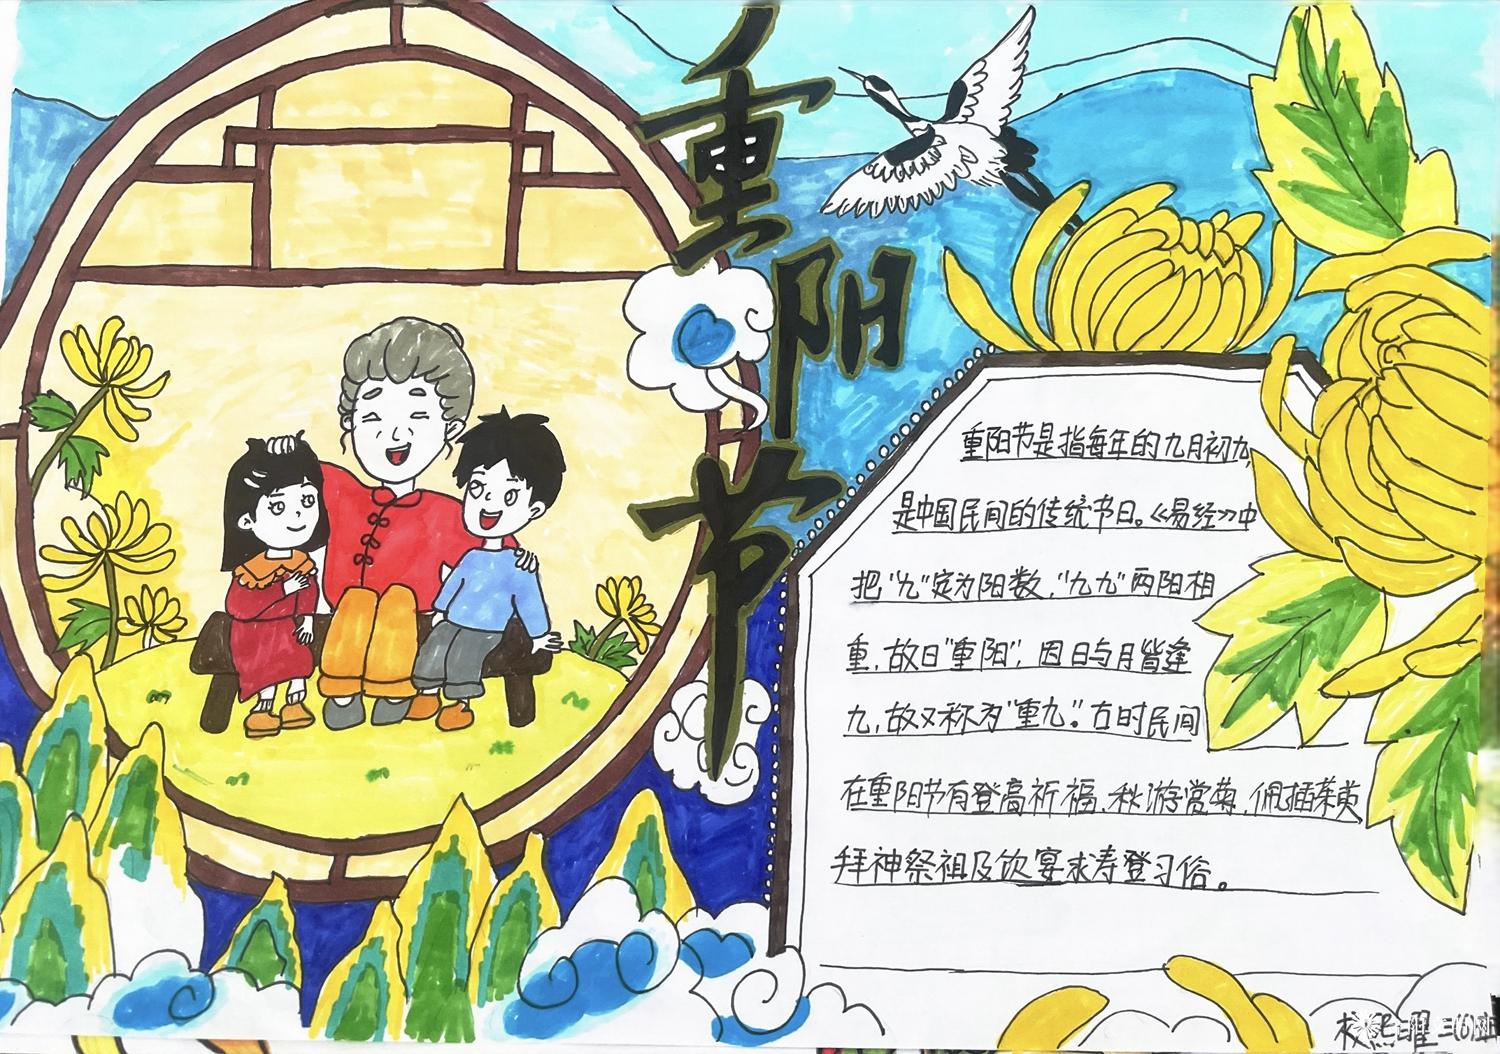 重阳节
重阳节是指每年的九月初九,
是中国民间的传统节日。《易经》中
把"九"定为阳数,"九九"两阳相
重,故曰"重阳",因日与月皆逢
九,故又称为"重九"。古时民间
在重阳节有登高祈福、秋游赏菊、佩插茱萸
拜神祭祖及饮宴求寿登习俗。